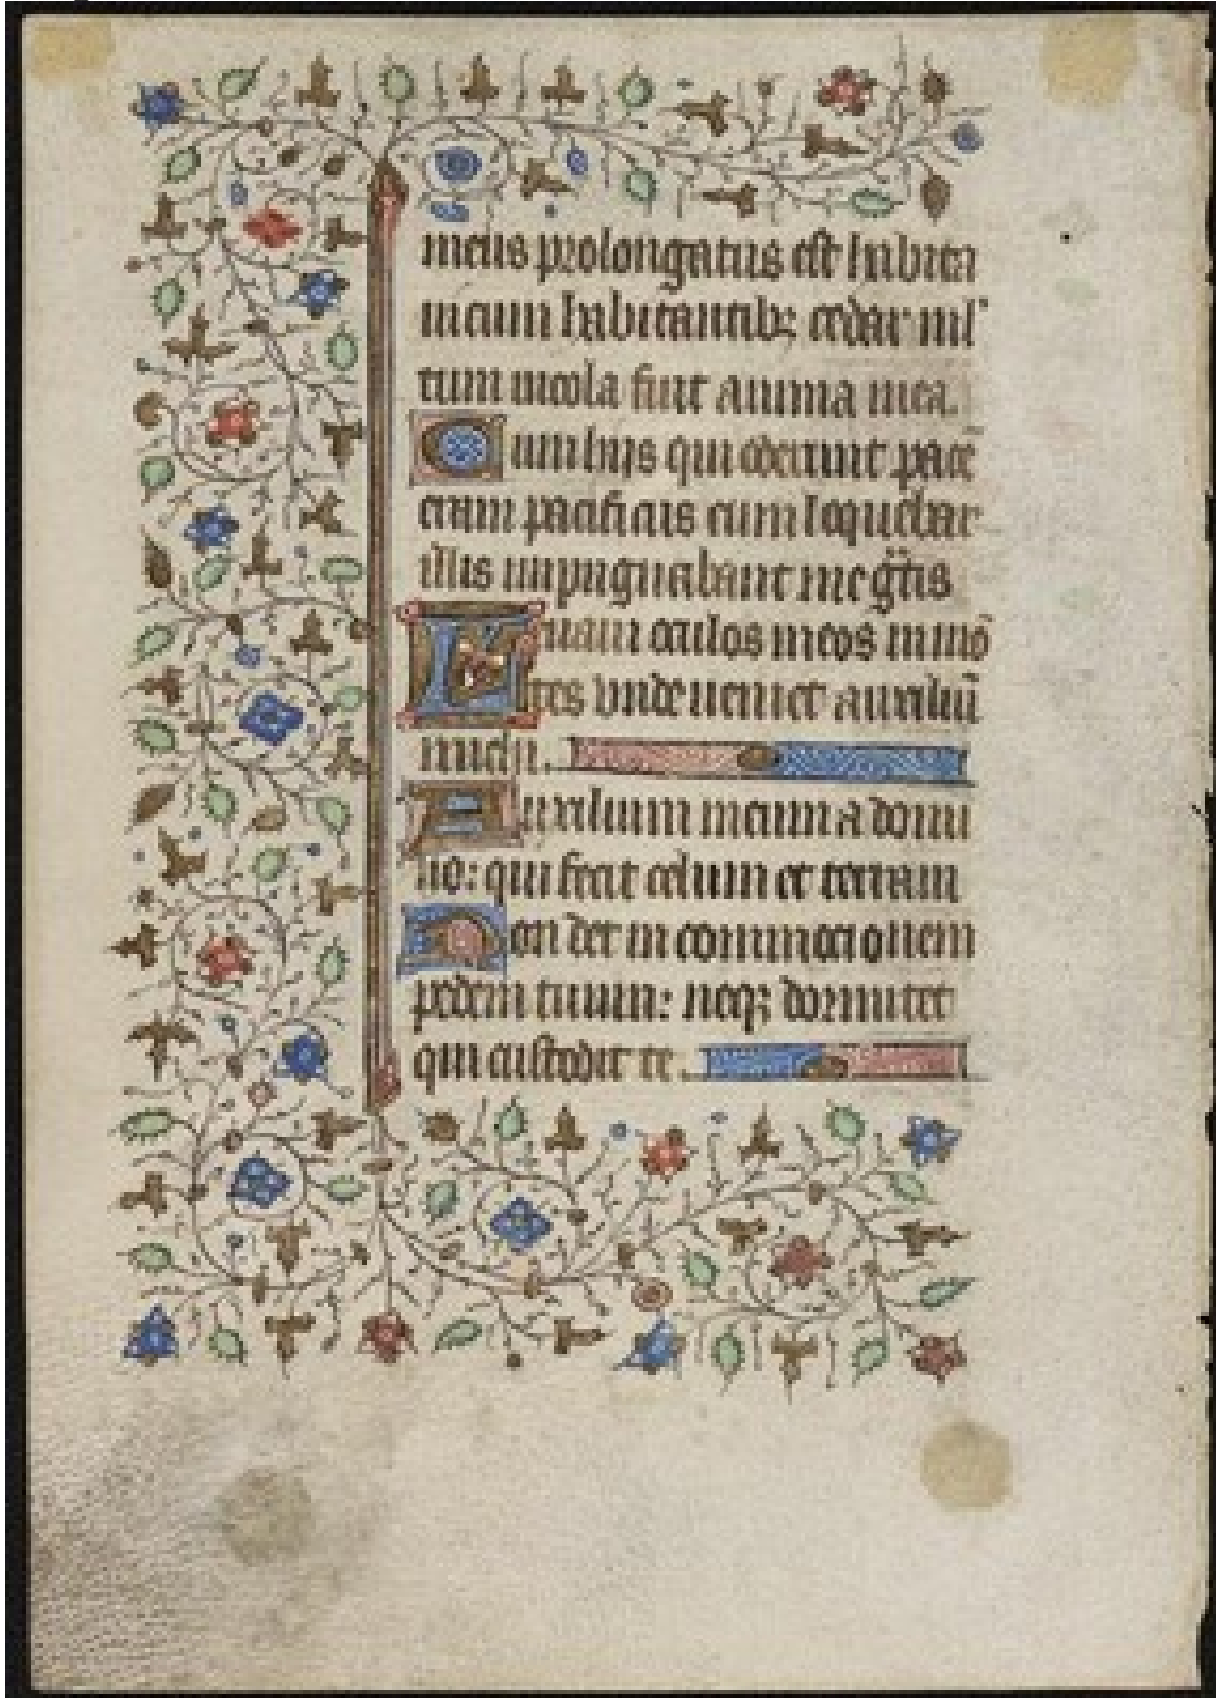 meus prolongatus est habita
uicum habitantibꝫ cedar ml'
tum incola fuit anima mea.
Cum hijs qui oderunt pacē
eram pacificus cum loquebar
illis inpugnabant me gr̄tis
Leuaui oculos meos in mō
tes vnde ueniet auxiliū
michi.
Auxilium meum a domi
no: qui fecit celum et terram
Non det in commocionem
pedem tuum: neqꝫ dormitet
qui custodit te.